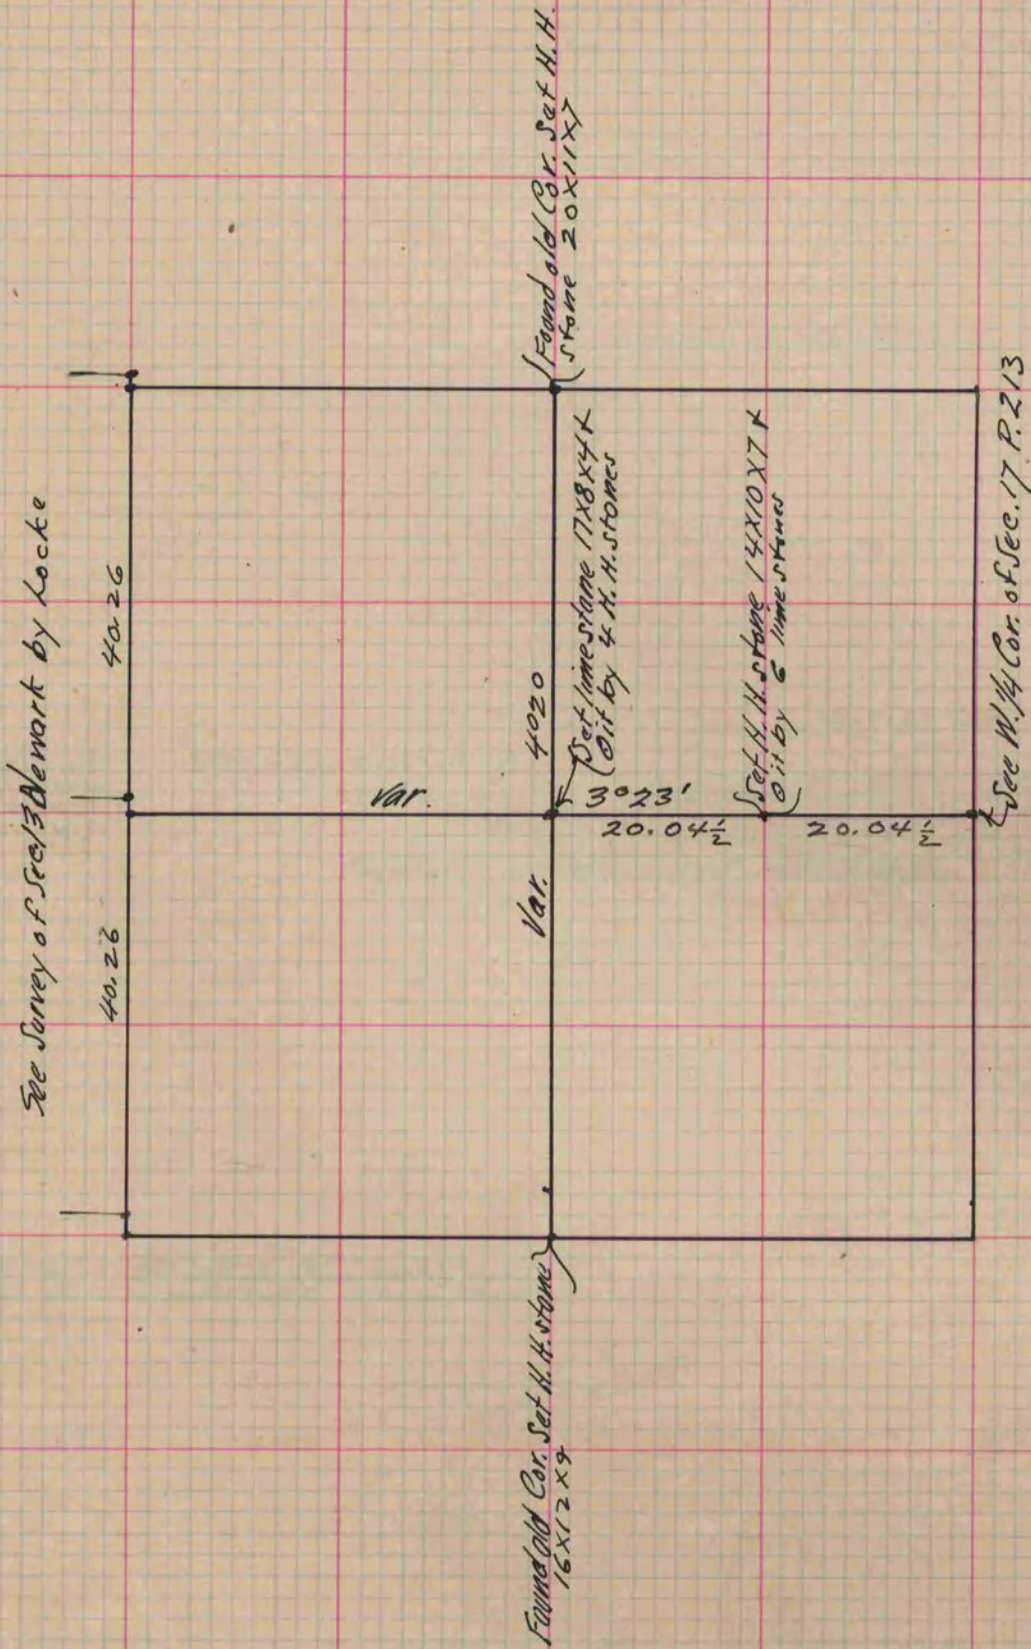 See Survey of Sec 13 Newark by Locke
40.26
40.26
Found old Cor. Set H.H.
stone 20X11X7
Set limestone 17X8X4 &
○ it by 4 H.H. stones
4020
Var.
3°23'
20.04½
20.04½
Var.
Set H.H. stone 14X10X7 &
○ it by 6 lime stones
See W.¼ Cor. of Sec. 17 P. 213
Found old Cor. Set H.H. stone
16X12X9